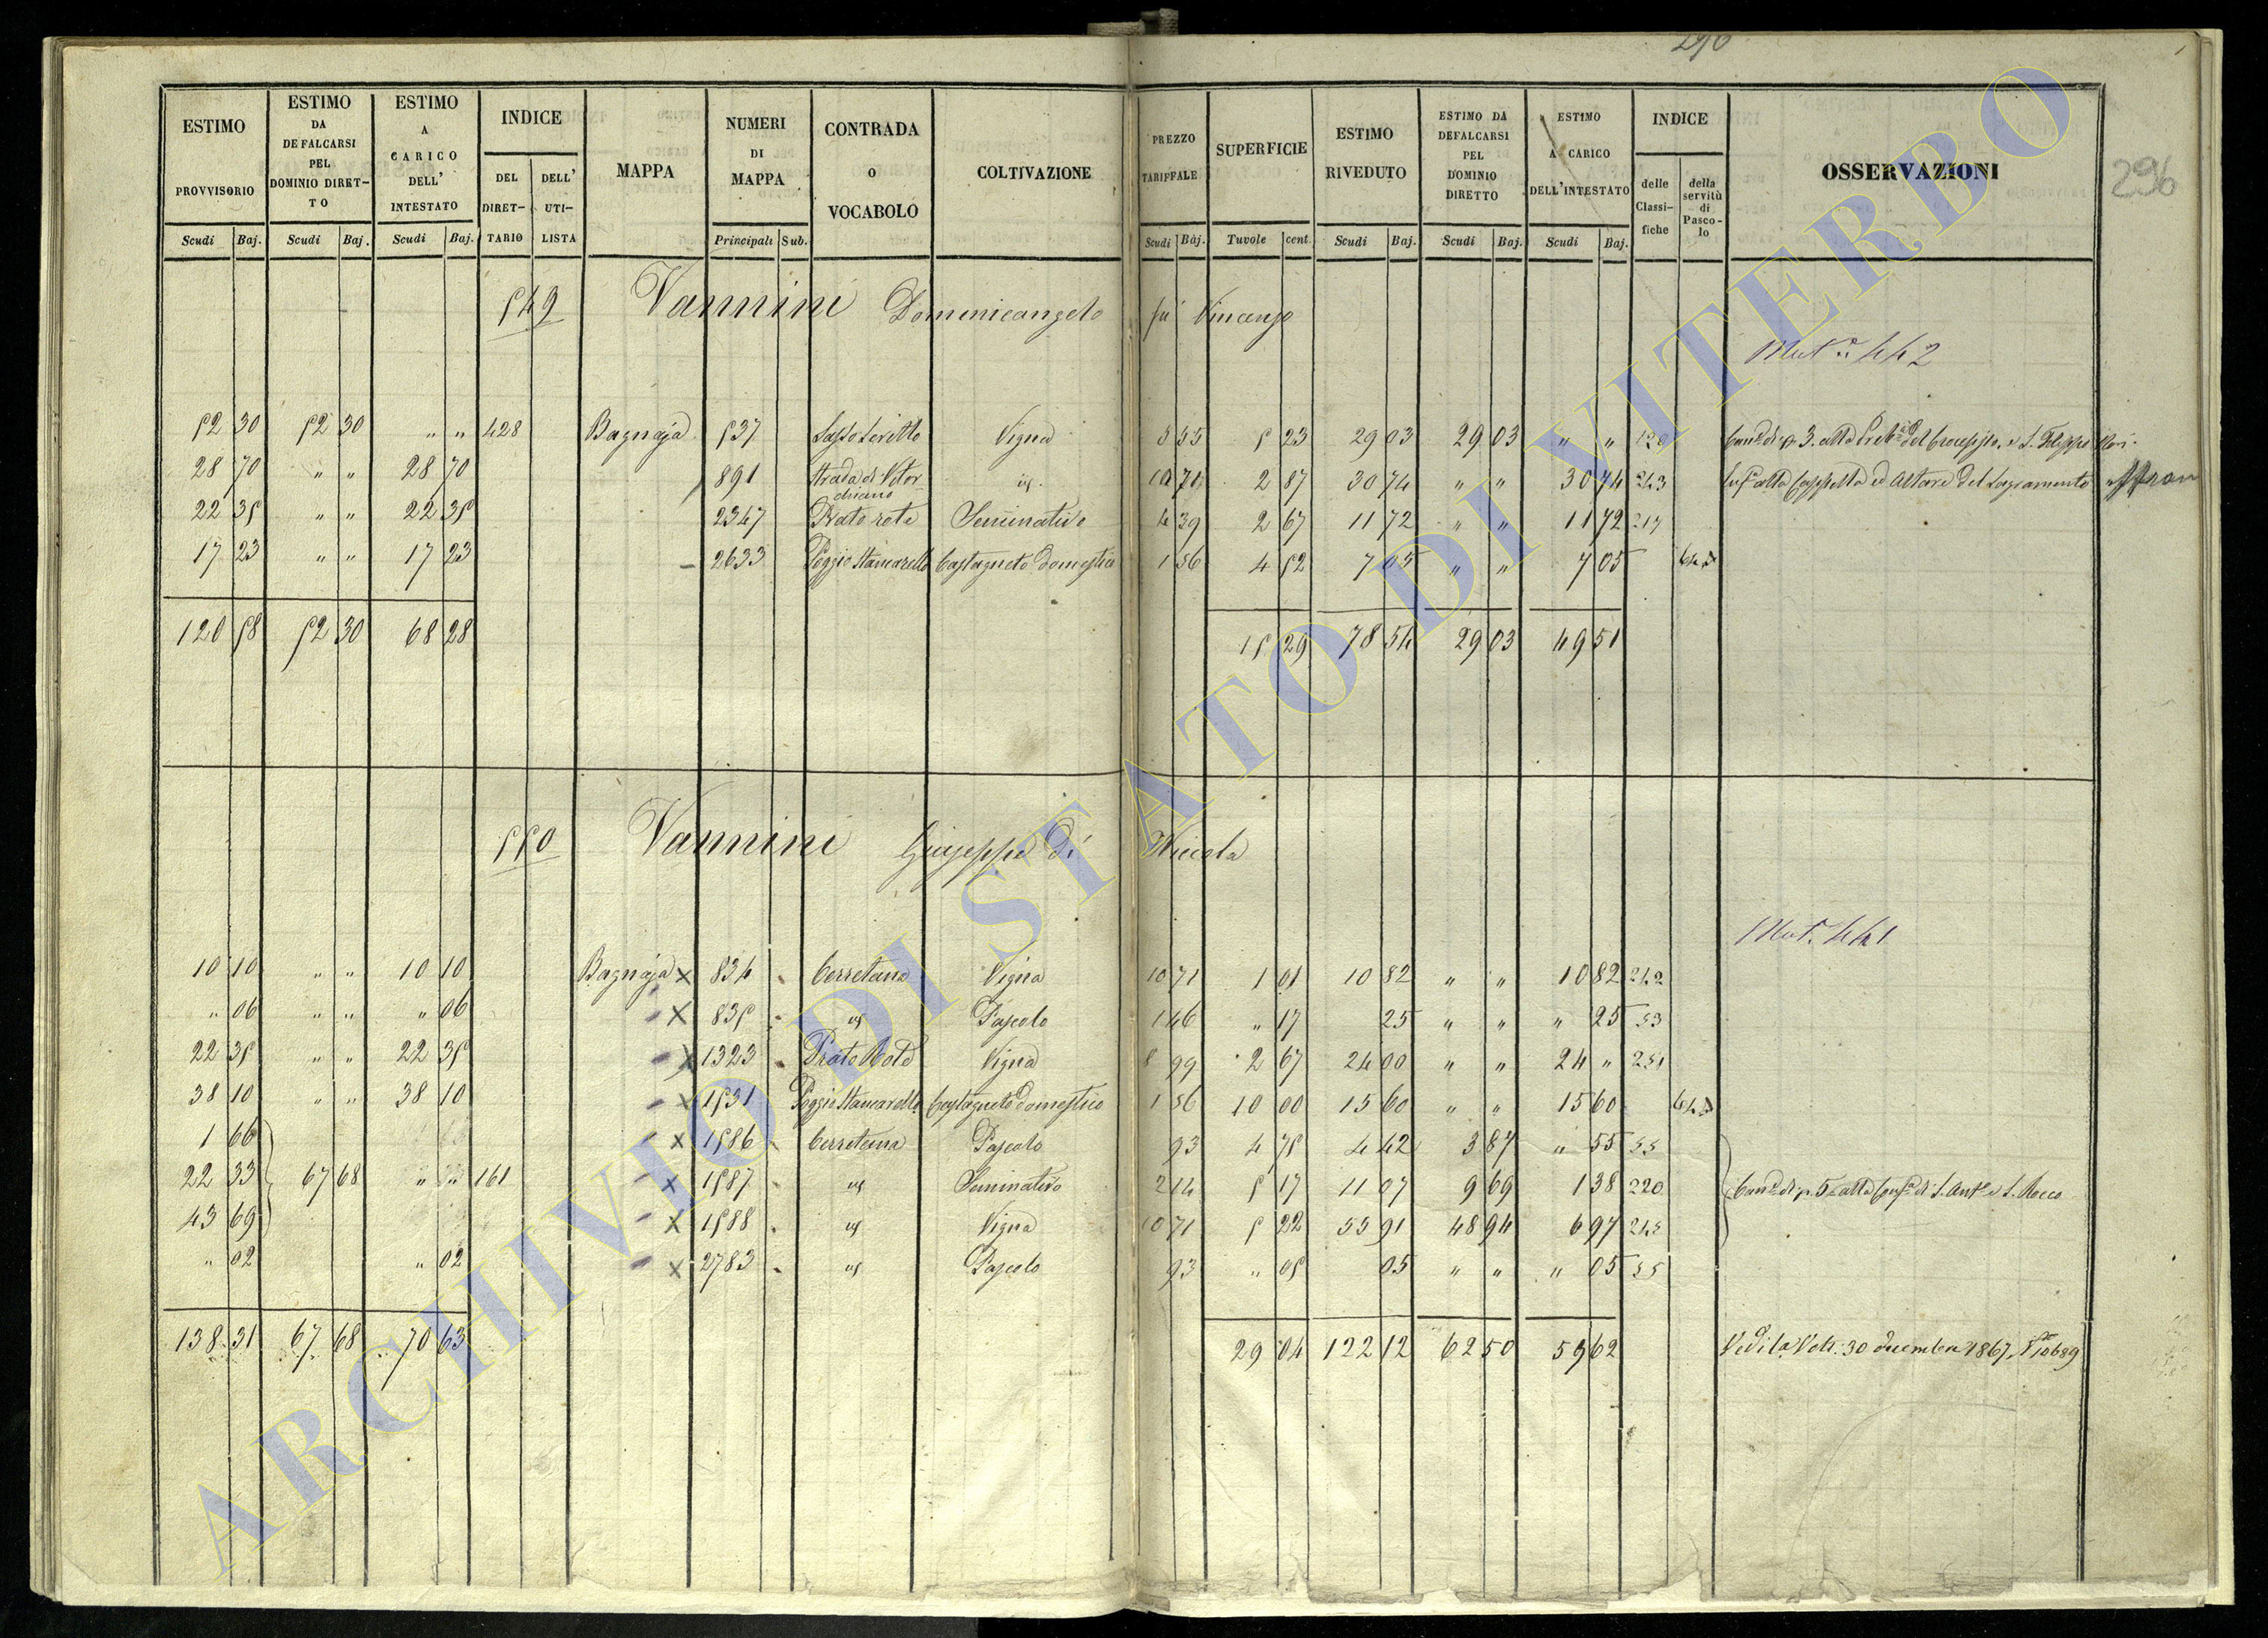 290
296
ESTIMO PROVVISORIO
ESTIMO DA DEFALCARSI PEL DOMINIO DIRET-TO
ESTIMO A CARICO DELL' INTESTATO
INDICE
DEL DIRET-TARIO
DELL' UTI-LISTA
MAPPA
NUMERI DI MAPPA
CONTRADA o VOCABOLO
COLTIVAZIONE
PREZZO TARIFFALE
SUPERFICIE
ESTIMO RIVEDUTO
ESTIMO DA DEFALCARSI PEL DOMINIO DIRETTO
ESTIMO A CARICO DELL'INTESTATO
INDICE
delle Classi-fiche
della servitù di Pasco-lo
OSSERVAZIONI
Scudi Baj. Scudi Baj. Scudi Baj. Principali Sub. Scudi Baj. Tavole cent. Scudi Baj. Scudi Baj. Scudi Baj.
549 Vannini Domenicangelo fu Vincenzo
Mut. 442
52 30 52 30 " " 428 Bagnaja 537 Vigna 5 55 5 23 29 03 29 03 " "
28 70 " " 28 70 891 Strada di Vitorchiano id. 10 71 2 87 30 74 " " 30 74 243 alla Cappella ed Altare del Sagramento
22 35 " " 22 35 2347 Prato roto Seminativo 4 39 2 67 11 72 " " 11 72 217
17 23 " " 17 23 2633 Poggio Stancarello Castagneto domestico 1 56 4 52 7 05 " " 7 05
120 58 52 30 68 28 15 29 78 54 29 03 49 51
550 Vannini Giuseppe di Niccola
Mut. 441
10 10 " " 10 10 Bagnaja x 834 Cerretana Vigna 10 71 1 01 10 82 " " 10 82 242
" 06 " " " 06 x 835 id Pascolo 1 46 " 17 25 " " " 25 53
22 35 " " 22 35 x 1323 Prato Roto Vigna 8 99 2 67 24 00 " " 24 " 251
38 10 " " 38 10 x 1531 Poggio Stancarello Castagneto domestico 1 56 10 00 15 60 " " 15 60
1 66 x 1586 Cerretana Pascolo 93 4 75 4 42 3 87 " 55 55
22 33 67 68 " " 161 x 1587 id Seminativo 2 14 5 17 11 07 9 69 1 38 220 alla S. Ant. e S. Rocco
43 69 x 1588 id Vigna 10 71 5 22 55 91 48 94 6 97 242
" 02 " 02 x 2783 id Pascolo 93 " 05 05 " " " 05 55
138 31 67 68 70 63 29 04 122 12 62 50 59 62 Vedi la Volt. 30 dicembre 1867, N. 10689
ARCHIVIO DI STATO DI VITERBO